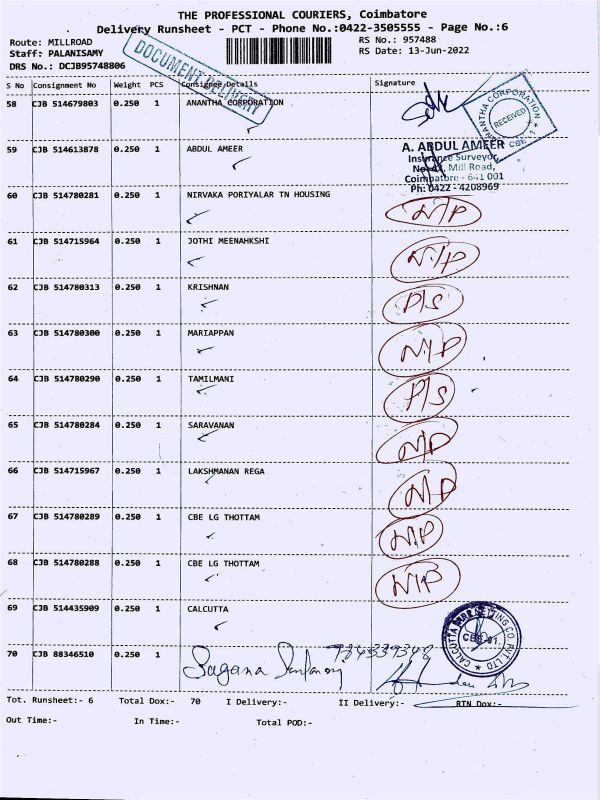 THE PROFESSIONAL COURIERS, Coimbatore
Delivery Runsheet - PCT - Phone No.:0422-3505555 - Page No.:6
Route: MILLROAD
RS No.: 957488
Staff: PALANISAMY
RS Date: 13-Jun-2022
DRS No.: DCJB95748806
DOCUMENT DELIVERY
S No Consignment No Weight PCS Consignee Details Signature
58 CJB 514679803 0.250 1 ANANTHA CORPORATION
ANANTHA CORPORATION
RECEIVED
CBE
59 CJB 514613878 0.250 1 ABDUL AMEER
A. ABDUL AMEER
Insurance Surveyor,
Mill Road,
Coimbatore - 641 001
Ph: 0422 - 4208969
60 CJB 514780281 0.250 1 NIRVAKA PORIYALAR TN HOUSING N/P
61 CJB 514715964 0.250 1 JOTHI MEENAHKSHI N/P
62 CJB 514780313 0.250 1 KRISHNAN P/S
63 CJB 514780300 0.250 1 MARIAPPAN N/P
64 CJB 514780290 0.250 1 TAMILMANI P/S
65 CJB 514780284 0.250 1 SARAVANAN N/P
66 CJB 514715967 0.250 1 LAKSHMANAN REGA N/P
67 CJB 514780289 0.250 1 CBE LG THOTTAM N/P
68 CJB 514780288 0.250 1 CBE LG THOTTAM N/P
69 CJB 514435909 0.250 1 CALCUTTA
CALCUTTA CO. PVT. LTD
70 CJB 88346510 0.250 1 Sugana
Tot. Runsheet:- 6 Total Dox:- 70 I Delivery:- II Delivery:- RTN Dox:-
Out Time:- In Time:- Total POD:-